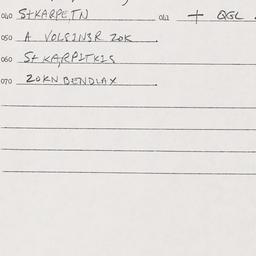 040 S+KARPETN 041 + QGL
050 A VOLSINSR 20K
060 S+ KARPITKIS
070 20KN BENDLAX